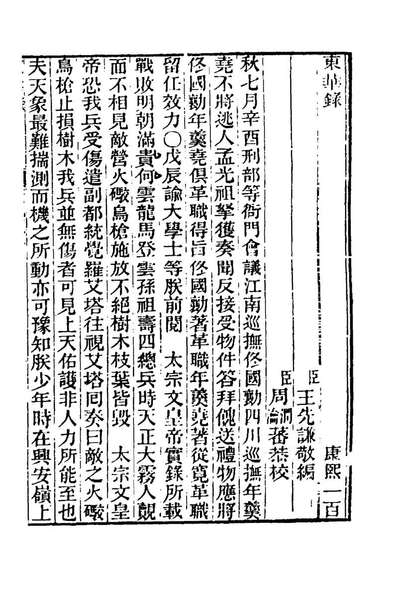 東華錄　康熙一百
臣王先謙敬編
臣周潤瀹蕃恭校
秋七月辛酉刑部等衙門會議江南巡撫佟國勷四川巡撫年羹
堯不將逃人孟光祖拏獲奏聞反接受物件答拜餽送禮物應將
佟國勷年羹堯俱革職得旨佟國勷著革職年羹堯著從寬革職
留任效力〇戊辰諭大學士等朕前閱　太宗文皇帝實錄所載
戰敗明朝滿貴何雲龍馬登雲孫祖壽四總兵時天正大霧人覿
而不相見敵營火礮鳥槍施放不絕樹木枝葉皆毀　太宗文皇
帝恐我兵受傷遣副都統覺羅艾塔往視艾塔回奏曰敵之火礮
鳥槍止損樹木我兵並無傷者可見上天佑護非人力所能至也
夫天象最難揣測而機之所動亦可豫知朕少年時在興安嶺上